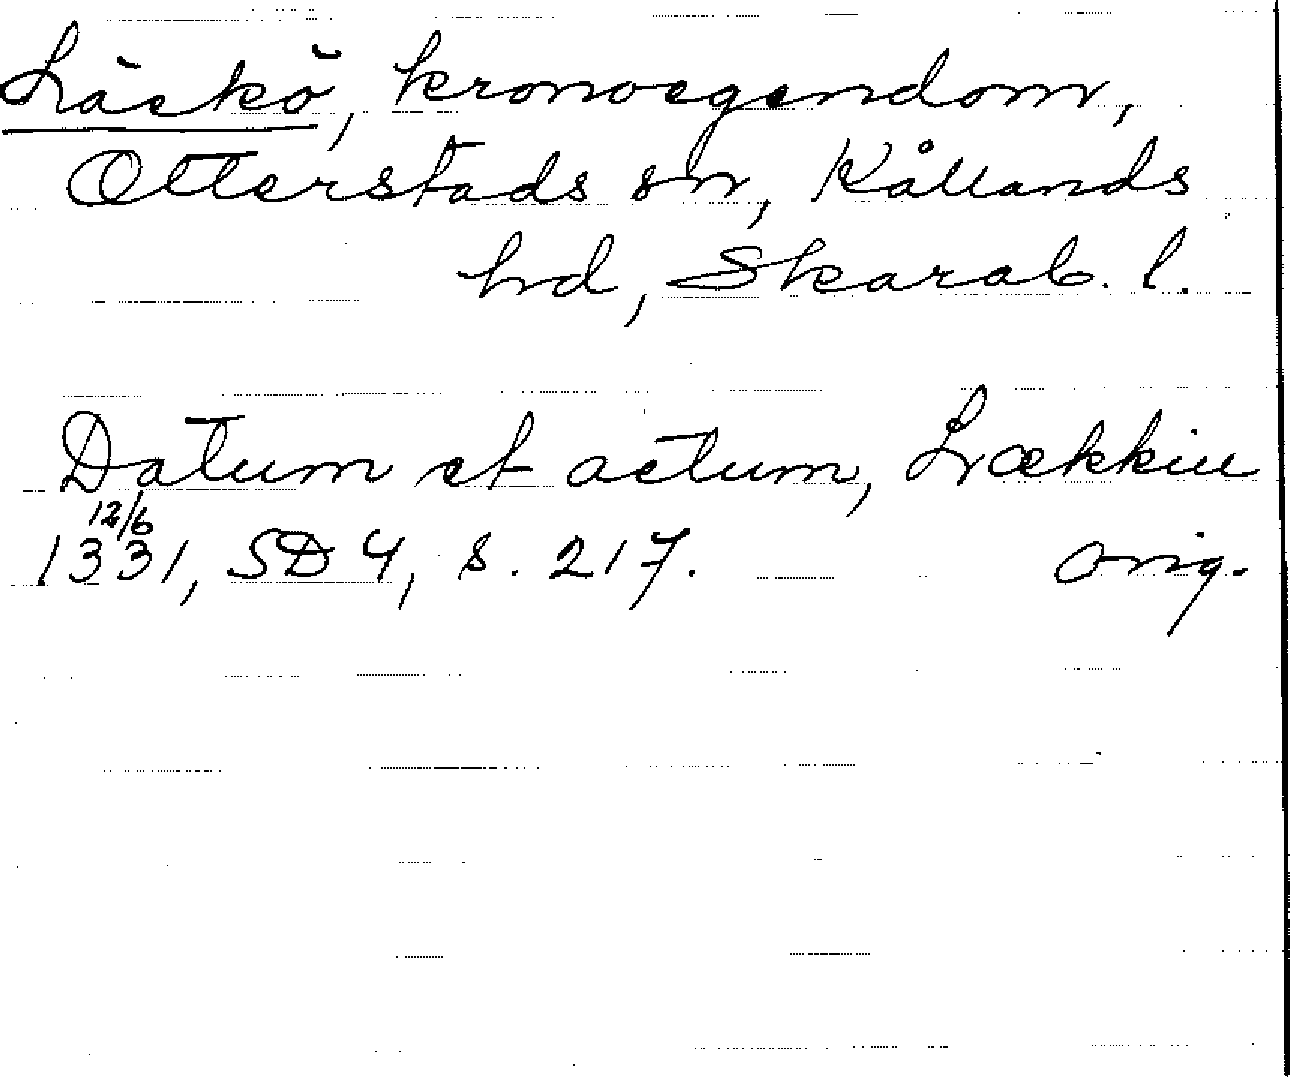 Läckö, kronoegendom,
Otterstads sn, Kållands
hd, Skarab. l.
Datum et actum, Lækkiu
12/6
1331, SD 4, s. 217. orig.